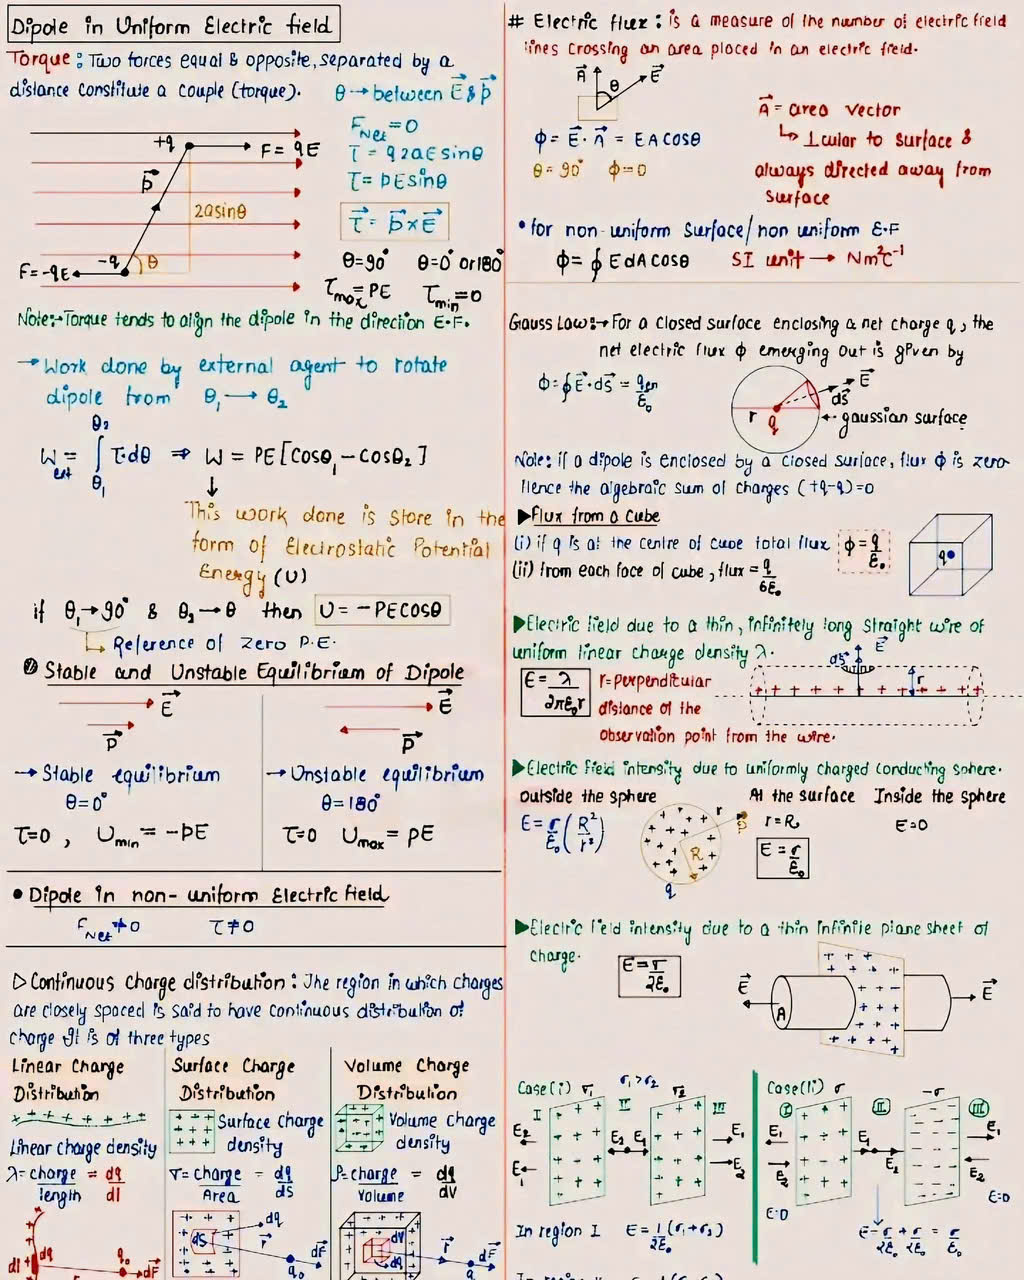 Dipole in Uniform Electric field
Torque : Two forces equal & opposite, separated by a
distance constitute a couple (torque).
θ → between E⃗ & p⃗
F_Net = 0
τ = q2aE sinθ
τ = pE sinθ
τ⃗ = p⃗ × E⃗
+q
F = qE
p⃗
2a sinθ
-q
θ
F = -qE
θ=90° θ=0° or 180°
τ_max = PE τ_min = 0
Note:→ Torque tends to align the dipole in the direction E.F.
→ Work done by external agent to rotate
dipole from θ₁ → θ₂
W_ext = ∫_θ₁^θ₂ τ·dθ ⇒ W = PE[Cosθ₁ - Cosθ₂]
↓
This work done is store in the
form of Electrostatic Potential
Energy (U)
if θ₁→90° & θ₂→θ then U = -PE cosθ
↳ Reference of zero P.E.
Stable and Unstable Equilibrium of Dipole
E⃗
P⃗
→ Stable equilibrium
θ=0°
τ=0 , U_min = -pE
E⃗
P⃗
→ Unstable equilibrium
θ=180°
τ=0 U_max = pE
• Dipole in non-uniform Electric field
F_Net ≠ 0 τ ≠ 0
▷ Continuous Charge distribution : The region in which charges
are closely spaced is said to have continuous distribution of
charge It is of three types
Linear Charge
Distribution
+ + + + + + + +
Linear charge density
λ = charge/length = dq/dl
dl
dq
q₀
dF⃗
Surface Charge
Distribution
Surface charge
density
σ = charge/Area = dq/dS
dS
dq
r⃗
q₀
dF⃗
Volume Charge
Distribution
Volume charge
density
ρ = charge/Volume = dq/dV
dV
dq
r⃗
dF⃗
q
# Electric flux : is a measure of the number of electric field
lines crossing an area placed in an electric field.
A⃗
θ
E⃗
A⃗ = area vector
↳ ⊥cular to surface &
always directed away from
surface
ϕ = E⃗ · A⃗ = EA cosθ
θ = 90° ϕ=0
• for non-uniform surface/non uniform E.F
ϕ = ∮ E dA cosθ SI unit → Nm²C⁻¹
Gauss Law:→ For a closed surface enclosing a net charge q, the
net electric flux ϕ emerging out is given by
ϕ = ∮ E⃗·dS⃗ = q_en/ε₀
E⃗
dS⃗
r
q
← gaussian surface
Note: if a dipole is enclosed by a closed surface, flux ϕ is zero
Hence the algebraic sum of charges (+q-q)=0
▶ flux from a cube
(i) if q is at the centre of cube total flux ϕ = q/ε₀
(ii) from each face of cube, flux = q/6ε₀
q
▶ Electric field due to a thin, infinitely long straight wire of
uniform linear charge density λ.
E = λ/2πε₀r
r = perpendicular
distance of the
observation point from the wire.
dS⃗
E⃗
r
+ + + + + + + + +
▶ Electric field intensity due to uniformly charged conducting sphere.
outside the sphere At the surface Inside the sphere
E = σ/ε₀ (R²/r²)
r
P
R
q
r = R,
E = σ/ε₀
E=0
▶ Electric field intensity due to a thin infinite plane sheet of
charge.
E = σ/2ε₀
E⃗
A
E⃗
Case(i) σ₁ σ₁>σ₂ σ₂
I II III
E₂ E₂ E₁ E₁
E₁ E₂
In region I E = 1/2ε₀ (σ₁+σ₂)
Case(ii) σ -σ
I II III
E₁ E₁ E₂ E₁
E₂ E₂
E=0 E=0
E = σ/2ε₀ + σ/2ε₀ = σ/ε₀